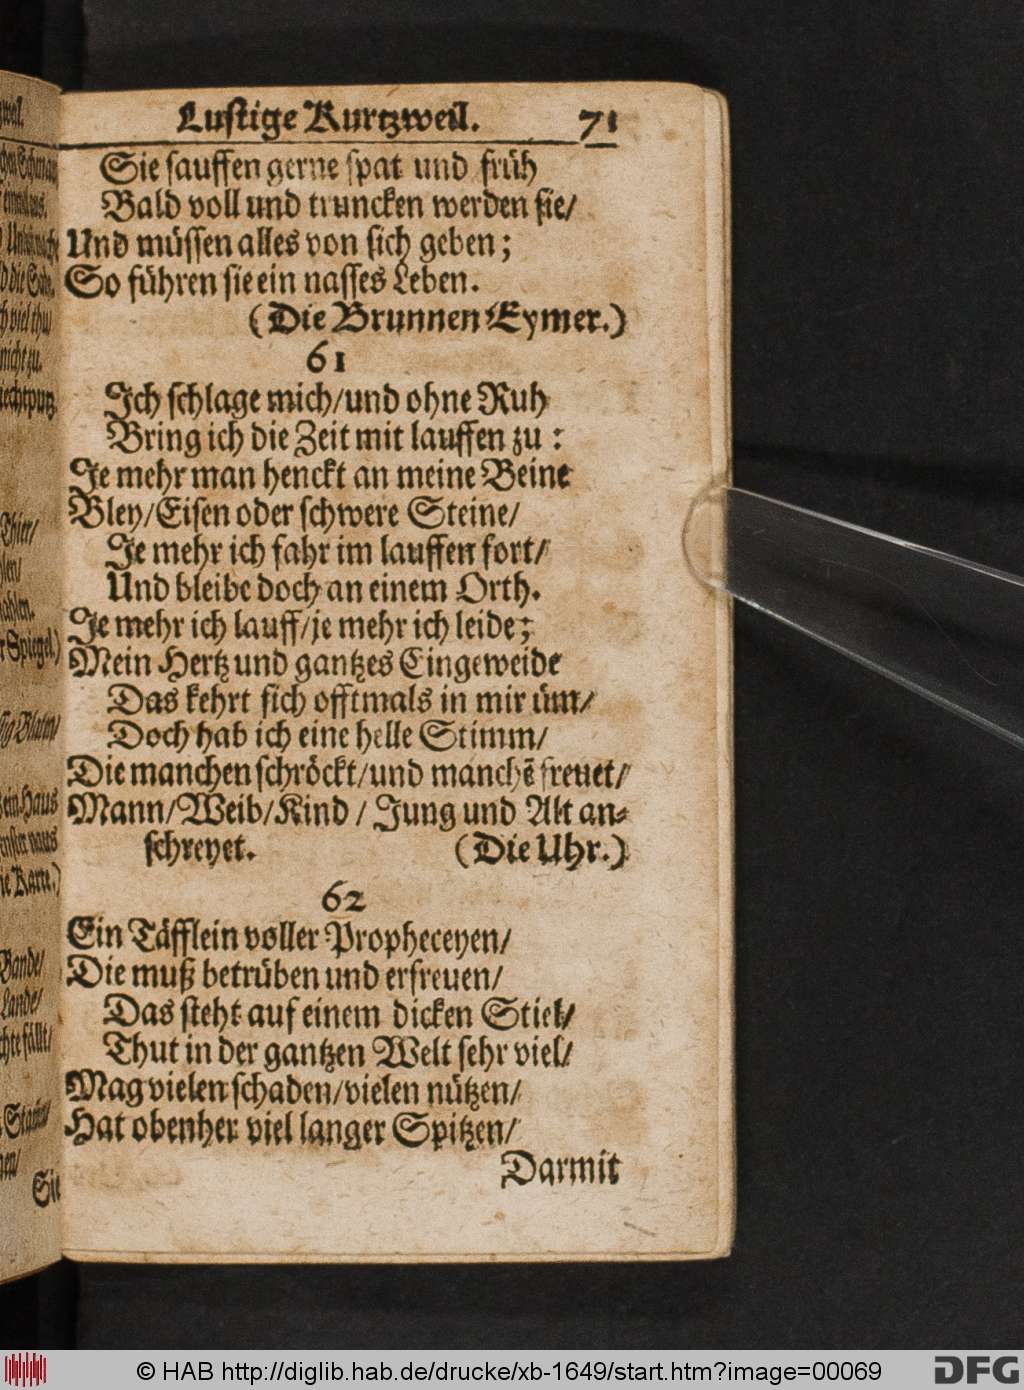 Lustige Kurtzweil. 71
Sie sauffen gerne spat und früh
Bald voll und truncken werden sie/
Und müssen alles von sich geben;
So führen sie ein nasses Leben.
(Die Brunnen Eymer.)
61
Ich schlage mich/und ohne Ruh
Bring ich die Zeit mit lauffen zu:
Je mehr man henckt an meine Beine
Bley/Eisen oder schwere Steine/
Je mehr ich fahr im lauffen fort/
Und bleibe doch an einem Orth.
Je mehr ich lauff/je mehr ich leide;
Mein Hertz und gantzes Eingeweide
Das kehrt sich offtmals in mir üm/
Doch hab ich eine helle Stimm/
Die manchen schröckt/und manchē freuet/
Mann/Weib/Kind/Jung und Alt an-
schreyet. (Die Uhr.)
62
Ein Täfflein voller Propheceyen/
Die muß betrüben und erfreuen/
Das steht auf einem dicken Stiel/
Thut in der gantzen Welt sehr viel/
Mag vielen schaden/vielen nützen/
Hat obenher viel langer Spitzen/
Darmit
© HAB http://diglib.hab.de/drucke/xb-1649/start.htm?image=00069
DFG